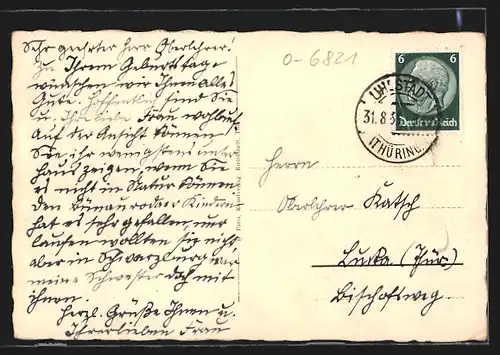 Sehr geehrter Herr Oberlehrer!
Zu Ihrem Geburtstage
wünschen wir Ihnen alles
Gute. Hoffentlich sind Sie
u. Ihre liebe Frau wohlauf.
Auf der Ansicht können
Sie ihr wenigstens unser
Haus zeigen, wenn Sie
es nicht in Natur können.
Den Künauroda er Kindern
hat es sehr gefallen, nur
laufen wollten sie nicht,
aber in Schwarzburg war
meine Schwester doch mit
ihnen.
Herzl. Grüße Ihnen u.
Ihrer lieben Frau
0-6821
6 6
Deutsches Reich
UHLSTÄDT
31.8.3
(THÜRING.
Herrn
Oberlehrer Katsch
Lucka (Thür)
Bischofsweg